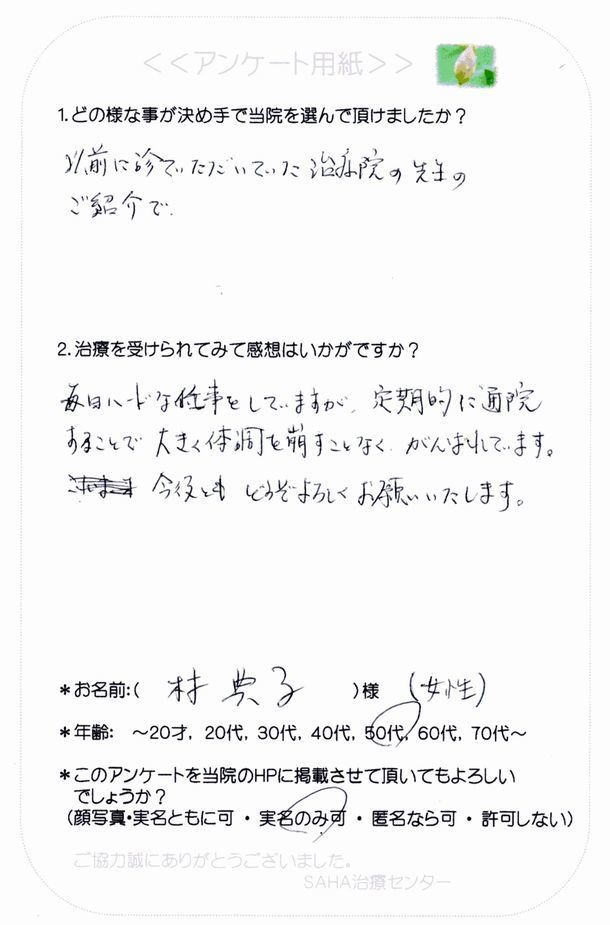 ＜＜アンケート用紙＞＞
1.どの様な事が決め手で当院を選んで頂けましたか？
以前に診ていただいていた治療院の先生の
ご紹介で.
2.治療を受けられてみて感想はいかがですか？
毎日ハードな仕事をしていますが、定期的に通院
することで 大きく体調を崩すことなく がんばれています。
今後とも どうぞよろしくお願いいたします。
＊お名前:( 村 典子 )様 (女性)
＊年齢: ～20才, 20代, 30代, 40代, 50代, 60代, 70代～
＊このアンケートを当院のHPに掲載させて頂いてもよろしい
でしょうか？
(顔写真・実名ともに可 ・ 実名のみ可 ・ 匿名なら可 ・ 許可しない)
ご協力誠にありがとうございました。
SAHA治療センター